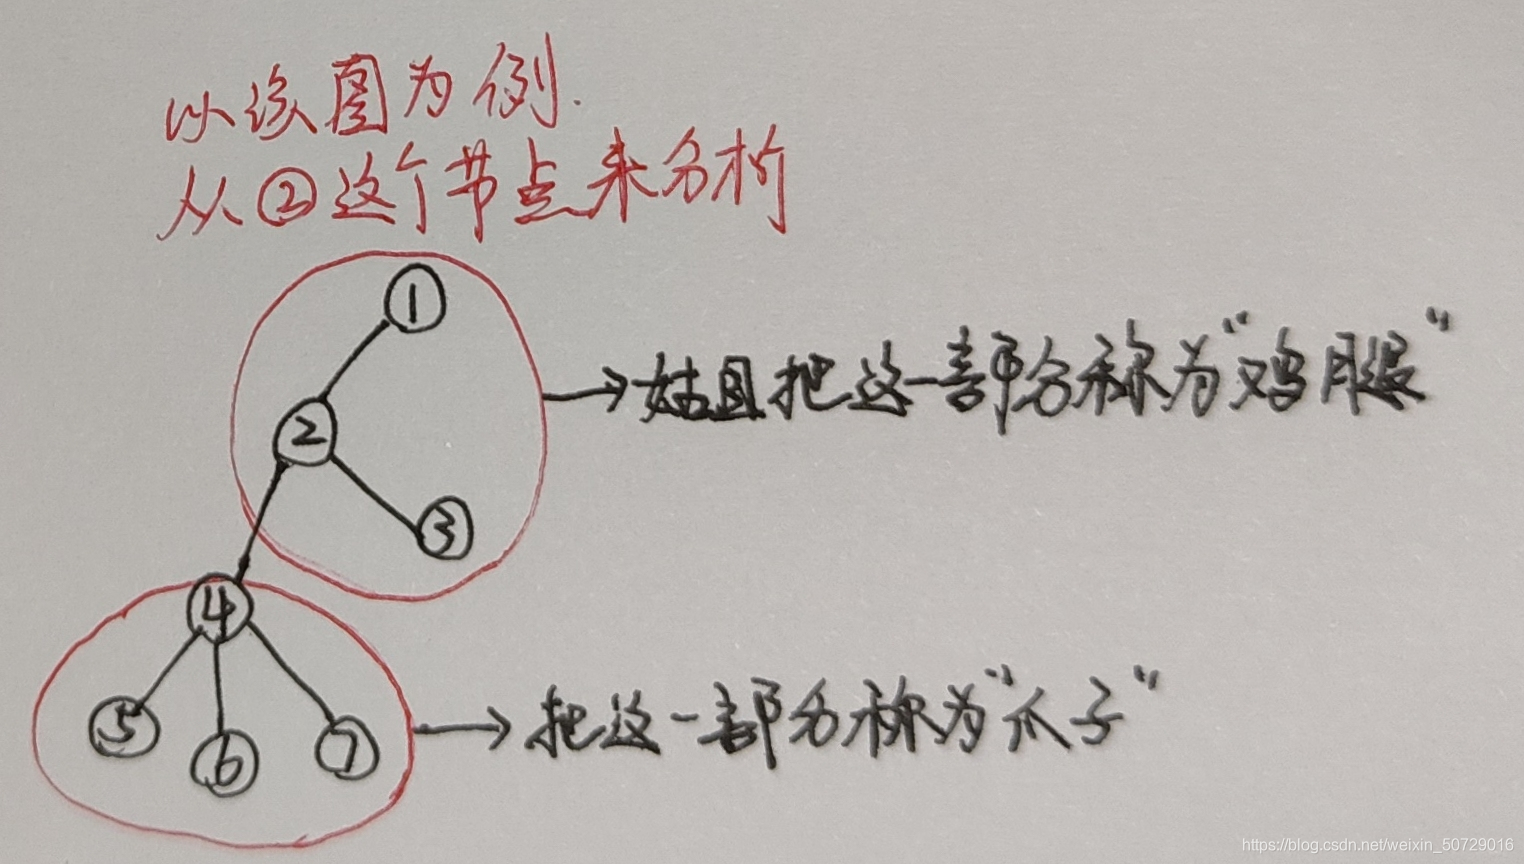 以该图为例.
从②这个节点来分析
①
→姑且把这一部分称为"鸡腿"
②
③
④
⑤ ⑥ ⑦
→把这一部分称为"爪子"
https://blog.csdn.net/weixin_50729016